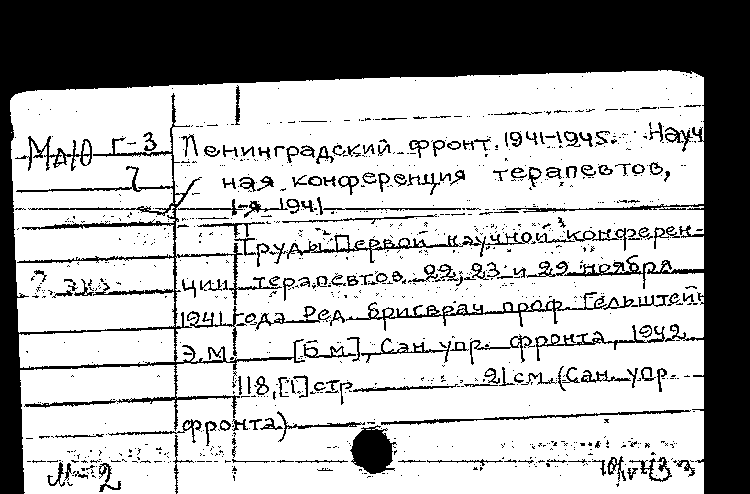 МДЮ Г-3 Ленинградский фронт. 1941-1945. Науч
7 ная конференция терапевтов,
1-я. 1941.
Труды Первой научной конферен-
2 экз. ции терапевтов 22, 23 и 29 ноября
1941 года Ред. бригврач проф. Гельштейн
Э.М. [Б м], Сан. упр. фронта, 1942
118, [1] стр 21 см (Сан. упр.
фронта)
М-2